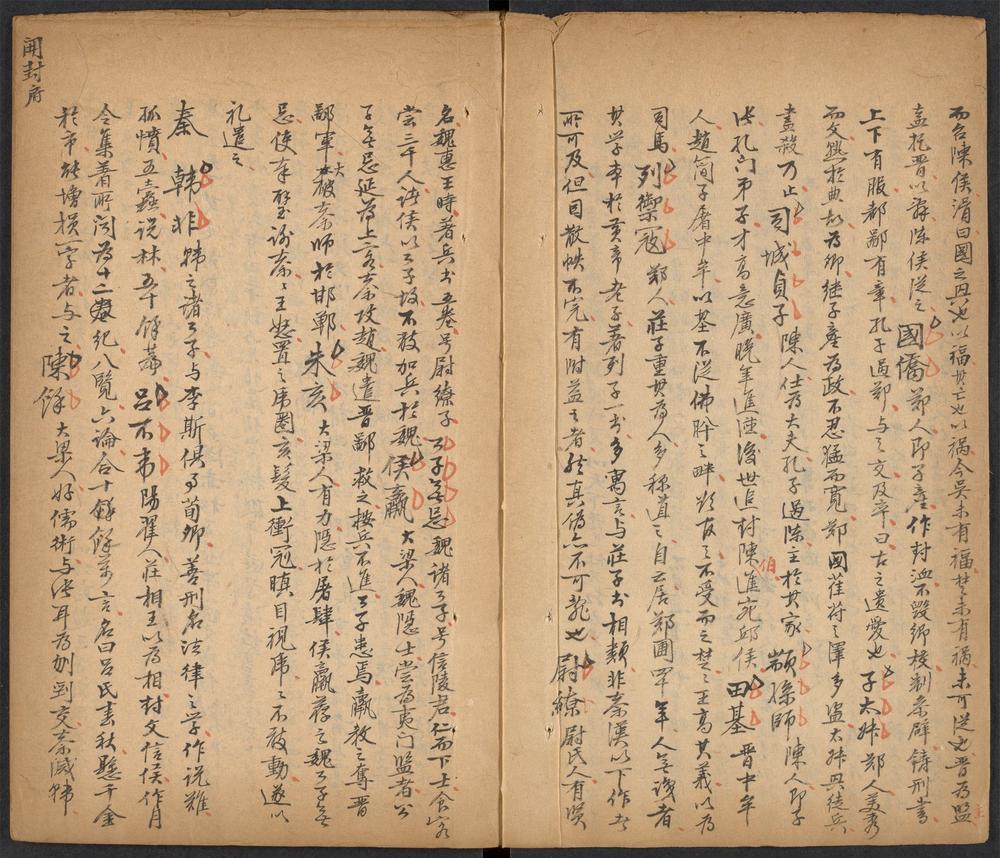 而召陳侯滑曰國之興也以福其亡也以禍今吳未有福楚未有禍未可從也晉為盟
盍托晉以辭陳侯從之國僑鄭人即子產作封洫不毀鄉校制參辟鑄刑書
上下有服都鄙有章孔子過鄭与之交及卒曰古之遺愛也子太叔鄭人美秀
而文熟於典故為卿继子產為政不忍猛而寬鄭國萑苻之澤多盜太叔興徒兵
盡殺乃止司城貞子陳人仕為大夫孔子過陳主於其家顓孫師陳人即子
張孔門弟子才高意廣晚年進德後世追封陳進宛邱侯伯田基晉中牟
人趙簡子屠中牟以基不從佛肸之畔欲友之不受而之楚之王高其義以為
司馬列禦寇鄭人莊子重其為人多称道之自云居鄭圃四十年人無識者
其学本於黃帝老子著列子一书多寓言与莊子书相類非秦漢以下作者
所可及但因散帙不完有附益之者然真偽亦不可乱也尉繚尉氏人有賢
名魏惠王時著兵书五卷号尉繚子公子無忌魏諸公子号信陵君仁而下士食客
嘗三千人諸侯以公子故不敢加兵於魏侯嬴大梁人魏隱士嘗為夷门監者公
子無忌延為上客秦攻趙魏遣晉鄙救之按兵不進公子患焉嬴教之奪晉
鄙軍大破秦師於邯鄲朱亥大梁人有力隱於屠肆侯嬴荐之魏公子無
忌使奉璧谢秦之王怒置之虎圈亥髮上衝冠瞋目視虎之不敢動遂以
礼遣之
秦韓非韩之诸公子与李斯俱事荀卿善刑名法律之学作说難
孤憤五蠹说林五十餘萬吕不韦陽翟人莊相王以為相封文信侯作月
令集著所闻為十二紀八覽六論合十餘萬言名曰吕氏春秋懸千金
於市能增損一字者与之陳餘大梁人好儒術与张耳為刎頸交秦滅韩
開封府